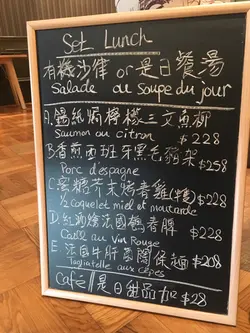 Set Lunch
有機沙律 or 是日餐湯
Salade ou Soupe du jour
A. 錫紙焗檸檬三文魚柳
Saumon au citron $228
B 香煎西班牙黑毛豬架 $258
Porc d'espagne
C. 蜜糖芥末烤春雞(半隻) $228
½ Coquelet miel et moutarde
D. 紅酒燴法國鴨脾 $228
au Vin Rouge
E.
Tagliatelle aux cèpes $208
Café // 是日甜品 加 $28